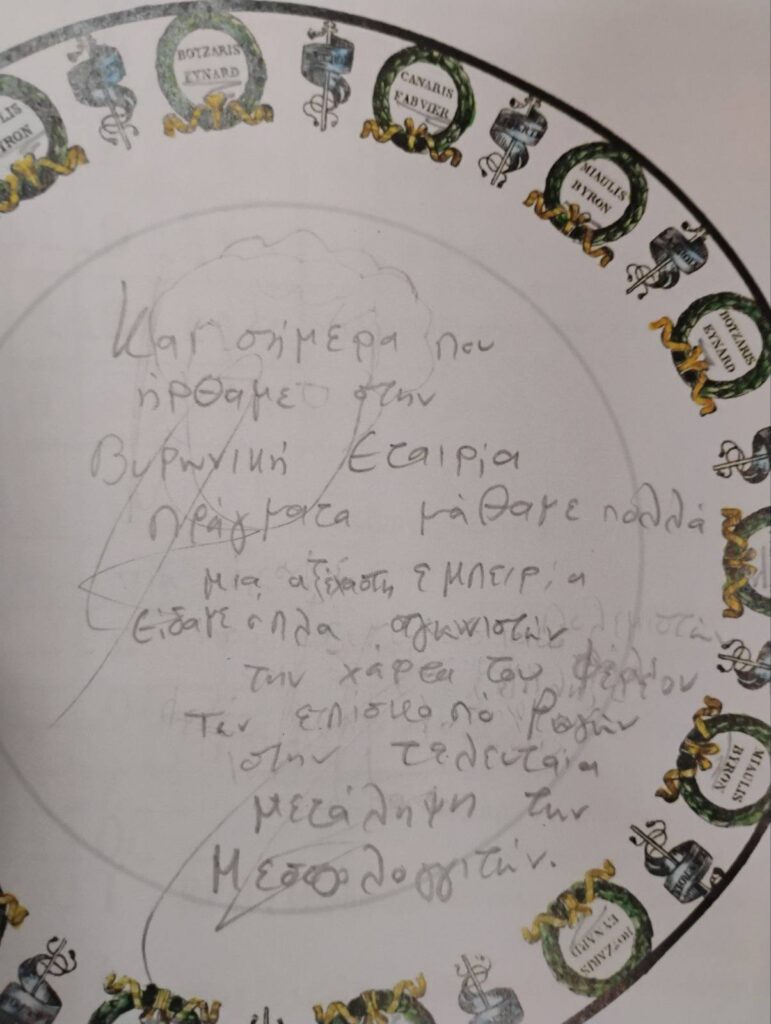 BOTZARIS
EYNARD
CANARIS
FABVIER
MIAULIS
BYRON
BOTZARIS
EYNARD
MIAULIS
BYRON
BOTZARIS
EYNARD
Και σήμερα που
ήρθαμε στην
Βυρωνική Εταιρία
πράγματα μάθαμε πολλά
μια αξέχαστη εμπειρία
είδαμε όπλα
την χάρτα του
Τον επίσκοπό Ρωγών
στην τελευταία
μετάληψη των
Μεσολογγιτών.